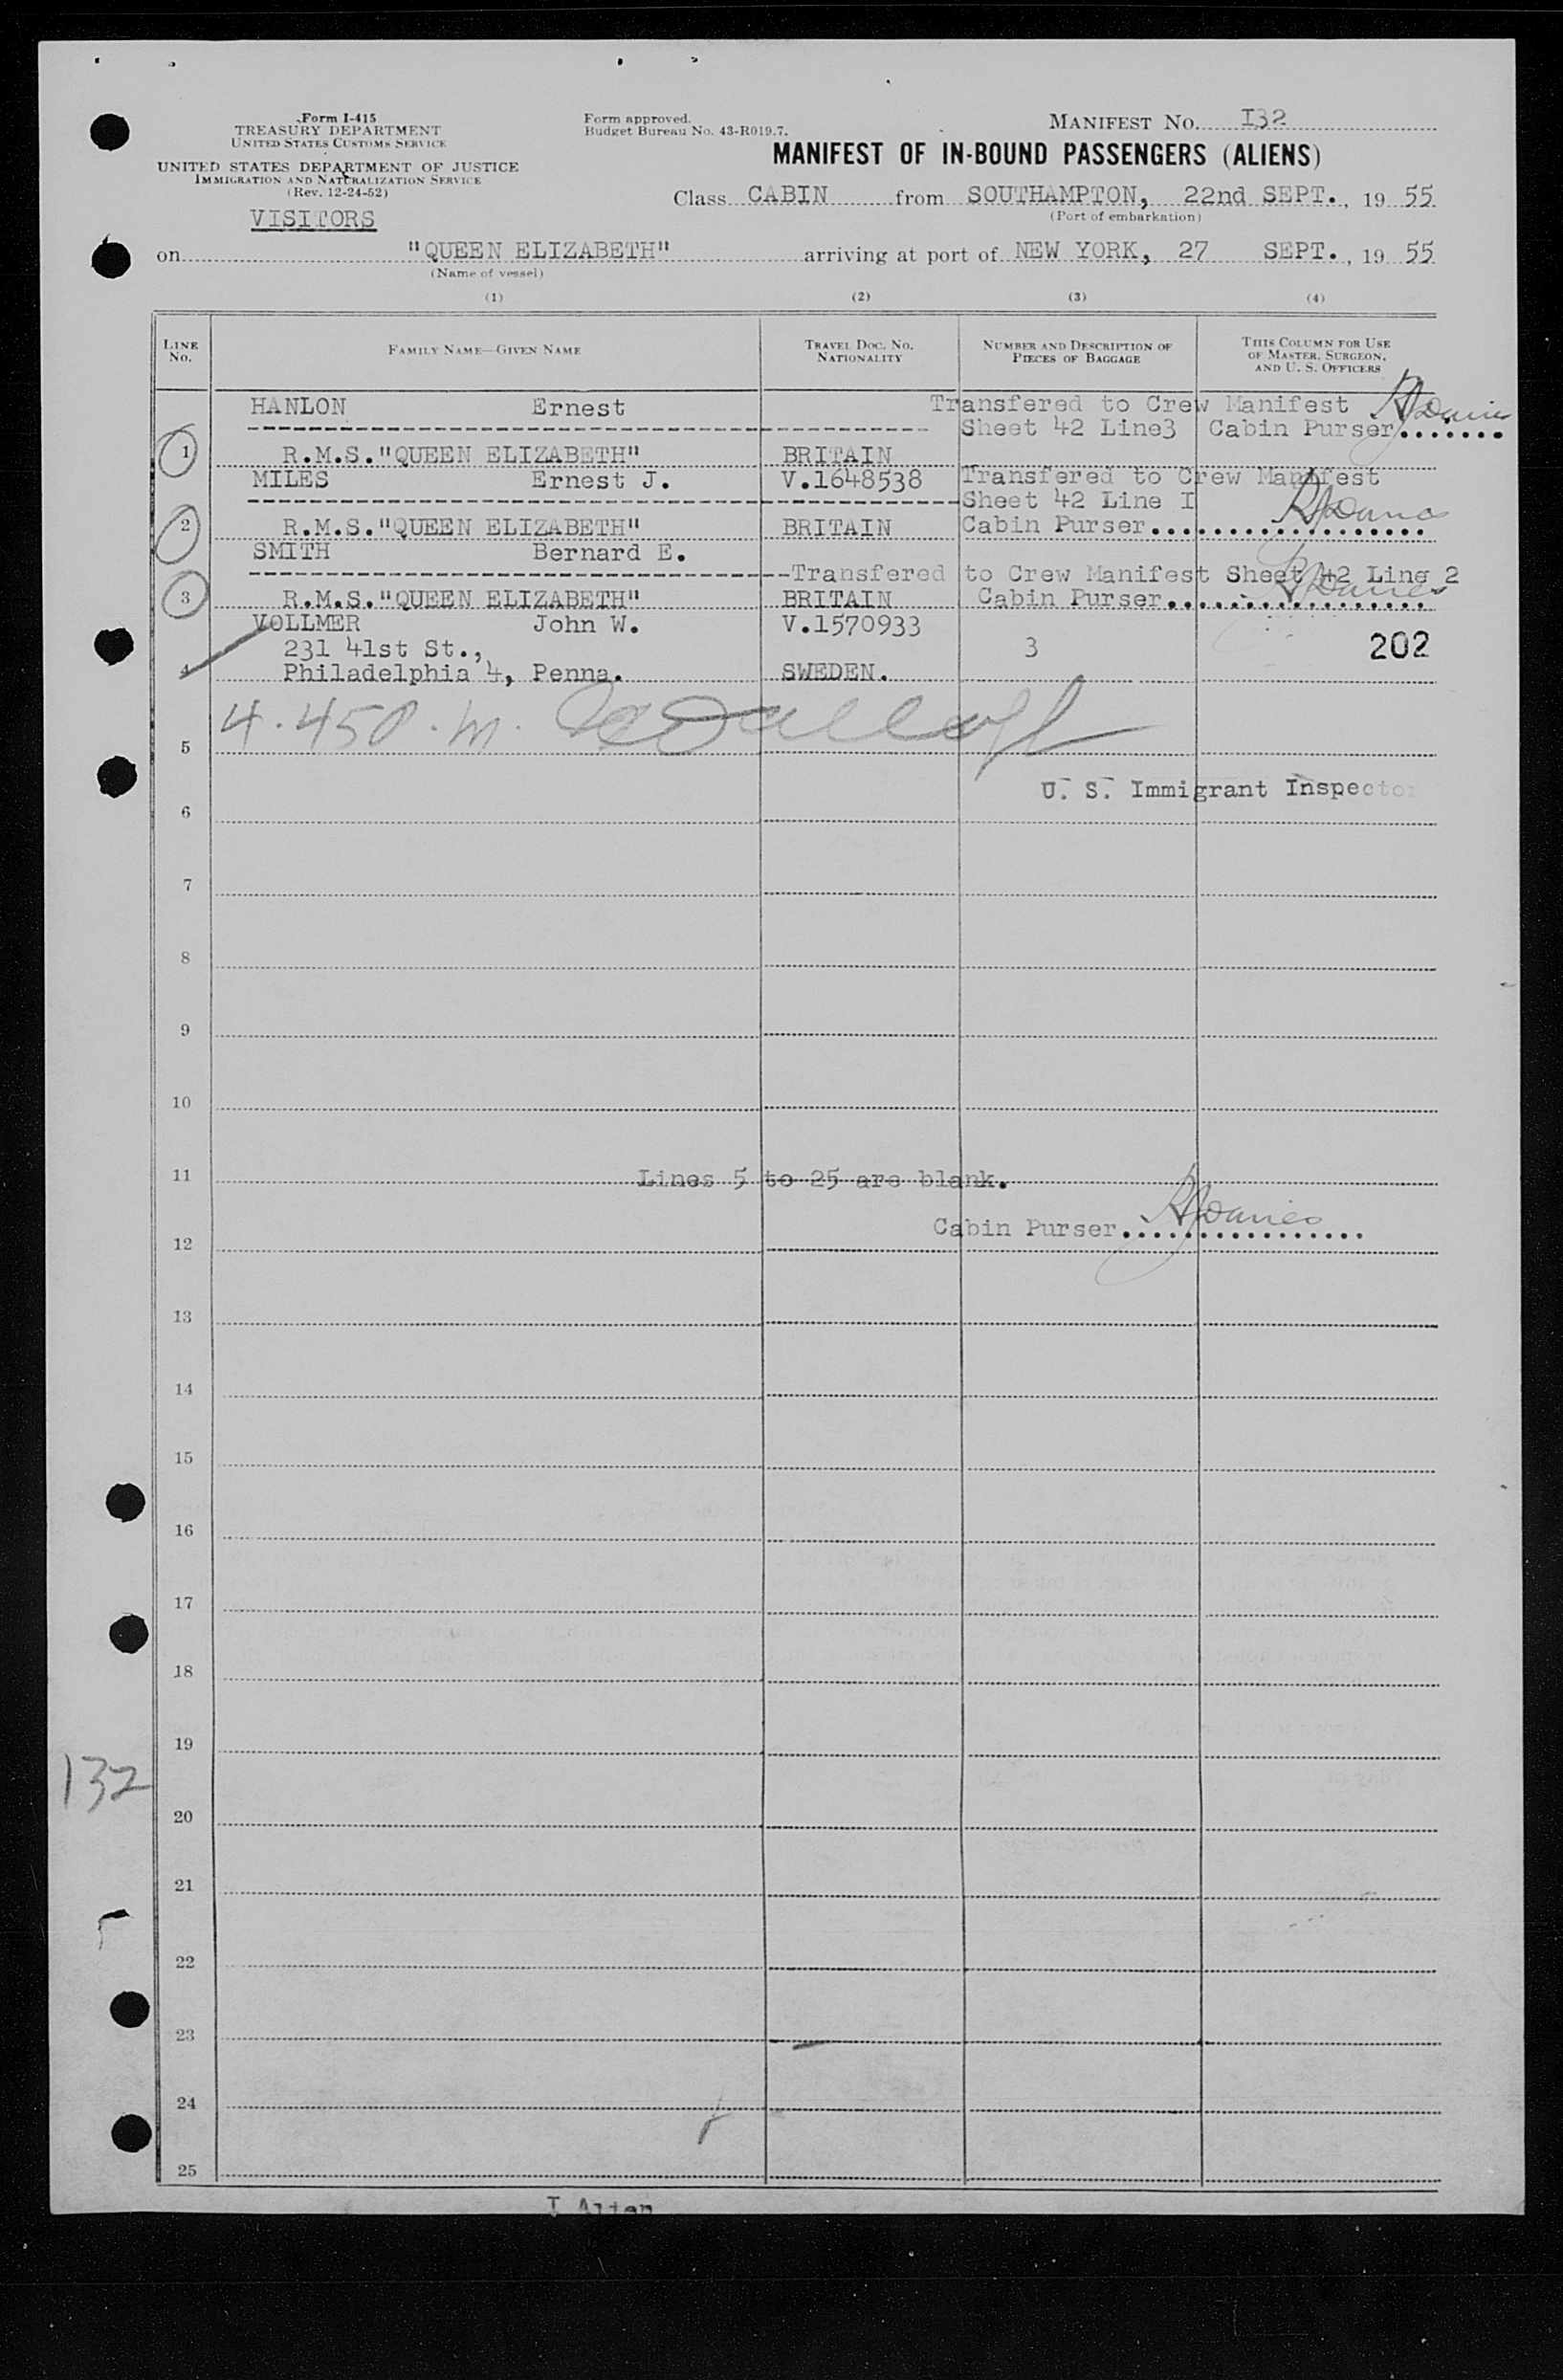 Form I-415
TREASURY DEPARTMENT
UNITED STATES CUSTOMS SERVICE
UNITED STATES DEPARTMENT OF JUSTICE
IMMIGRATION AND NATURALIZATION SERVICE
(Rev. 12-24-52)
VISITORS
Form approved.
Budget Bureau No. 43-R019.7.
MANIFEST NO. I32
MANIFEST OF IN-BOUND PASSENGERS (ALIENS)
Class CABIN from SOUTHAMPTON, 22nd SEPT., 19 55
(Port of embarkation)
on "QUEEN ELIZABETH" arriving at port of NEW YORK, 27 SEPT., 19 55
(Name of vessel)
(1) (2) (3) (4)
LINE NO. FAMILY NAME—GIVEN NAME TRAVEL DOC. NO. NATIONALITY NUMBER AND DESCRIPTION OF PIECES OF BAGGAGE THIS COLUMN FOR USE OF MASTER, SURGEON, AND U. S. OFFICERS
HANLON Ernest Transfered to Crew Manifest
Sheet 42 Line3 Cabin Purser....... Davies
1 R.M.S."QUEEN ELIZABETH" BRITAIN
MILES Ernest J. V.1648538 Transfered to Crew Manifest
Sheet 42 Line I
2 R.M.S."QUEEN ELIZABETH" BRITAIN Cabin Purser.................. Davies
SMITH Bernard E.
Transfered to Crew Manifest Sheet 42 Line 2
3 R.M.S."QUEEN ELIZABETH" BRITAIN Cabin Purser................. Davies
VOLLMER John W. V.1570933
231 41st St., 3 202
4 Philadelphia 4, Penna. SWEDEN.
4.45 P.M.
5
U. S. Immigrant Inspector
6
7
8
9
10
11 Lines 5 to 25 are blank.
Cabin Purser................ Davies
12
13
14
15
16
17
18
19
132
20
21
22
23
24
25
I Alien